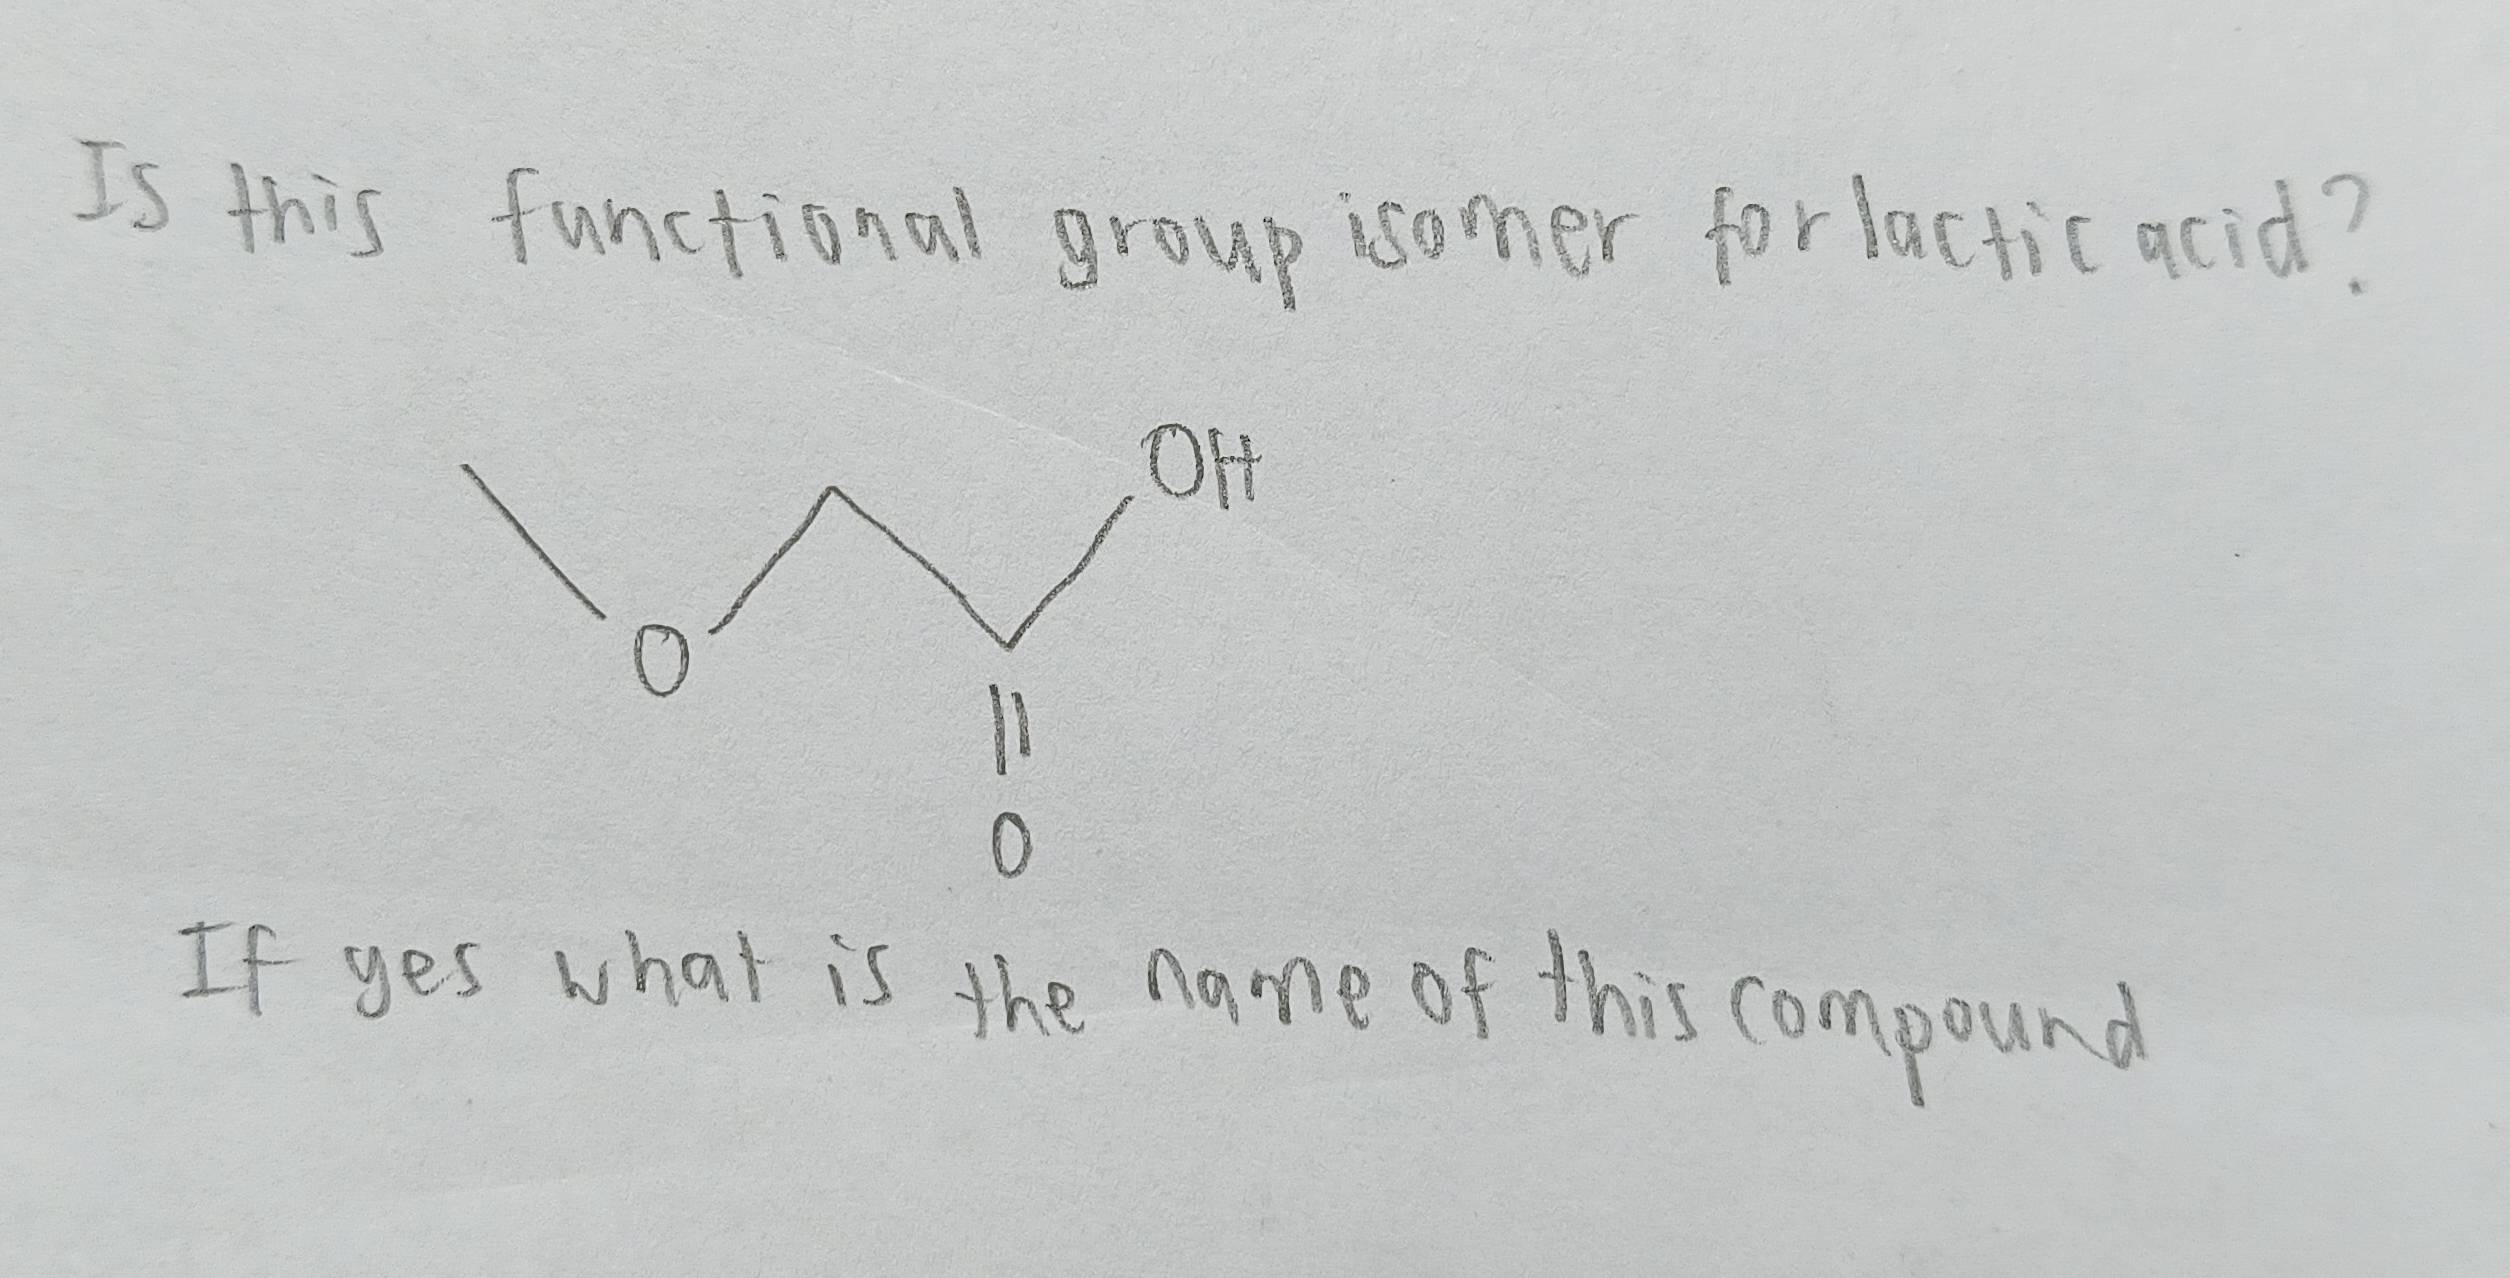 Is this functional group isomer for lactic acid?
OH
O
O
If yes what is the name of this compound